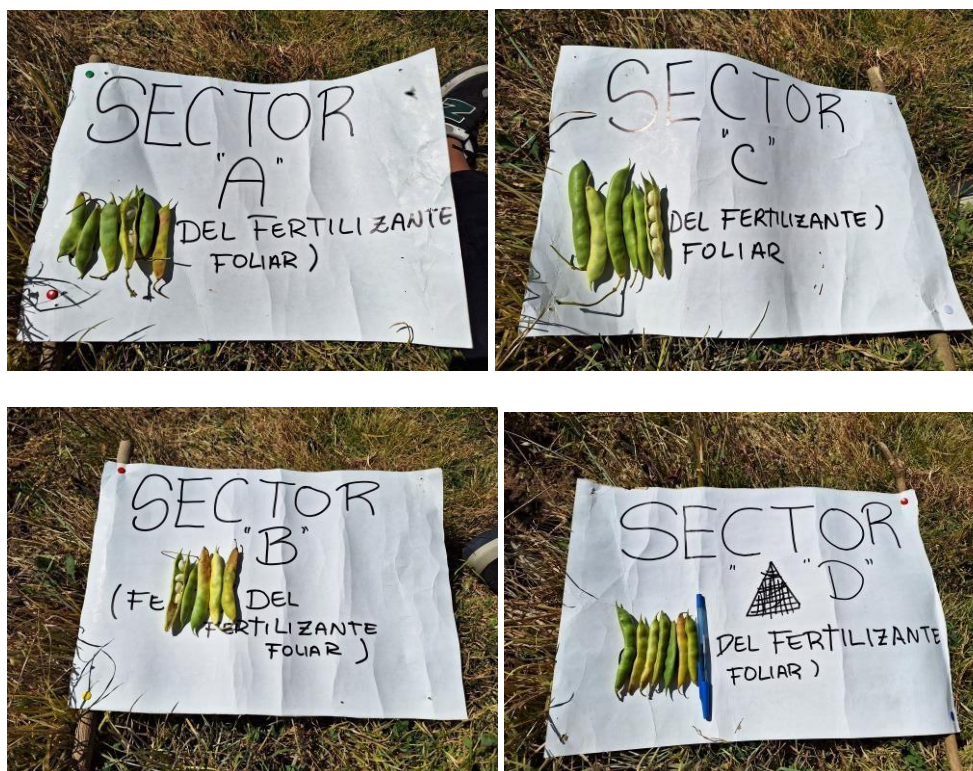 SECTOR
"A"
DEL FERTILIZANTE
FOLIAR)
SECTOR
"C"
DEL FERTILIZANTE)
FOLIAR
SECTOR
"B"
(FE DEL
FERTILIZANTE
FOLIAR)
SECTOR
" "D"
DEL FERTILIZANTE
FOLIAR)